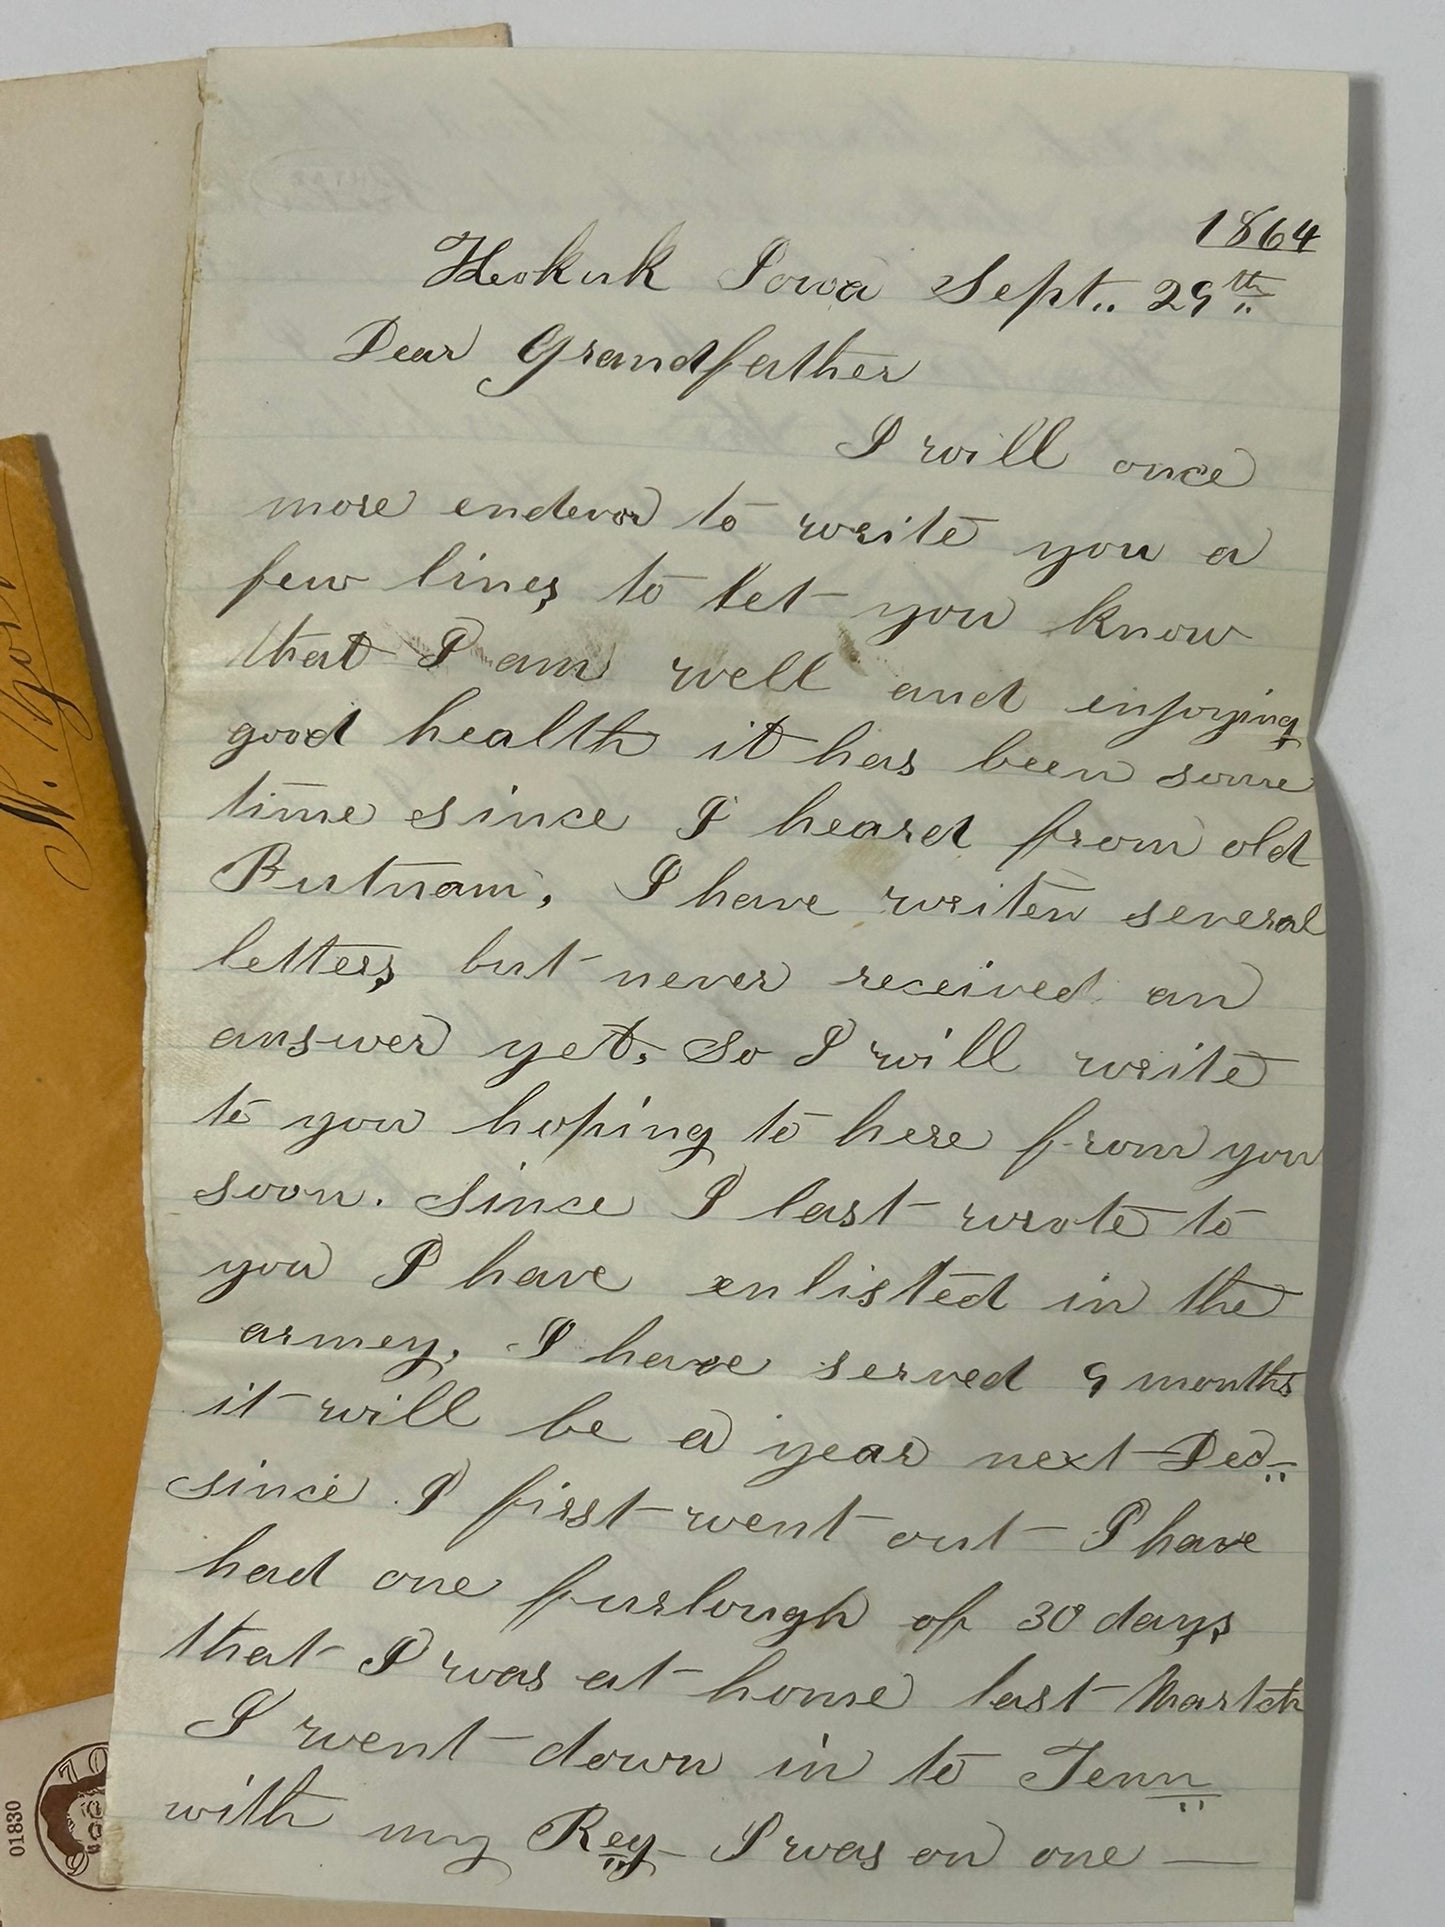 1864
Keokuk Iowa Sept.. 29th
Dear Grandfather
I will once
more endevor to write you a
few lines to let you know
that I am well and enjoying
good health it has been some
time since I heard from old
Putnam, I have writen several
letters but never received an
answer yet, So I will write
to you hoping to here from you
soon. Since I last wrote to
you I have enlisted in the
armey, I have served 9 months
it will be a year next Dec
since I first went out I have
had one furlough of 30 days
that I was at home last Martch
I went down in to Tenn
with my Reg I was on one —
N.
01830